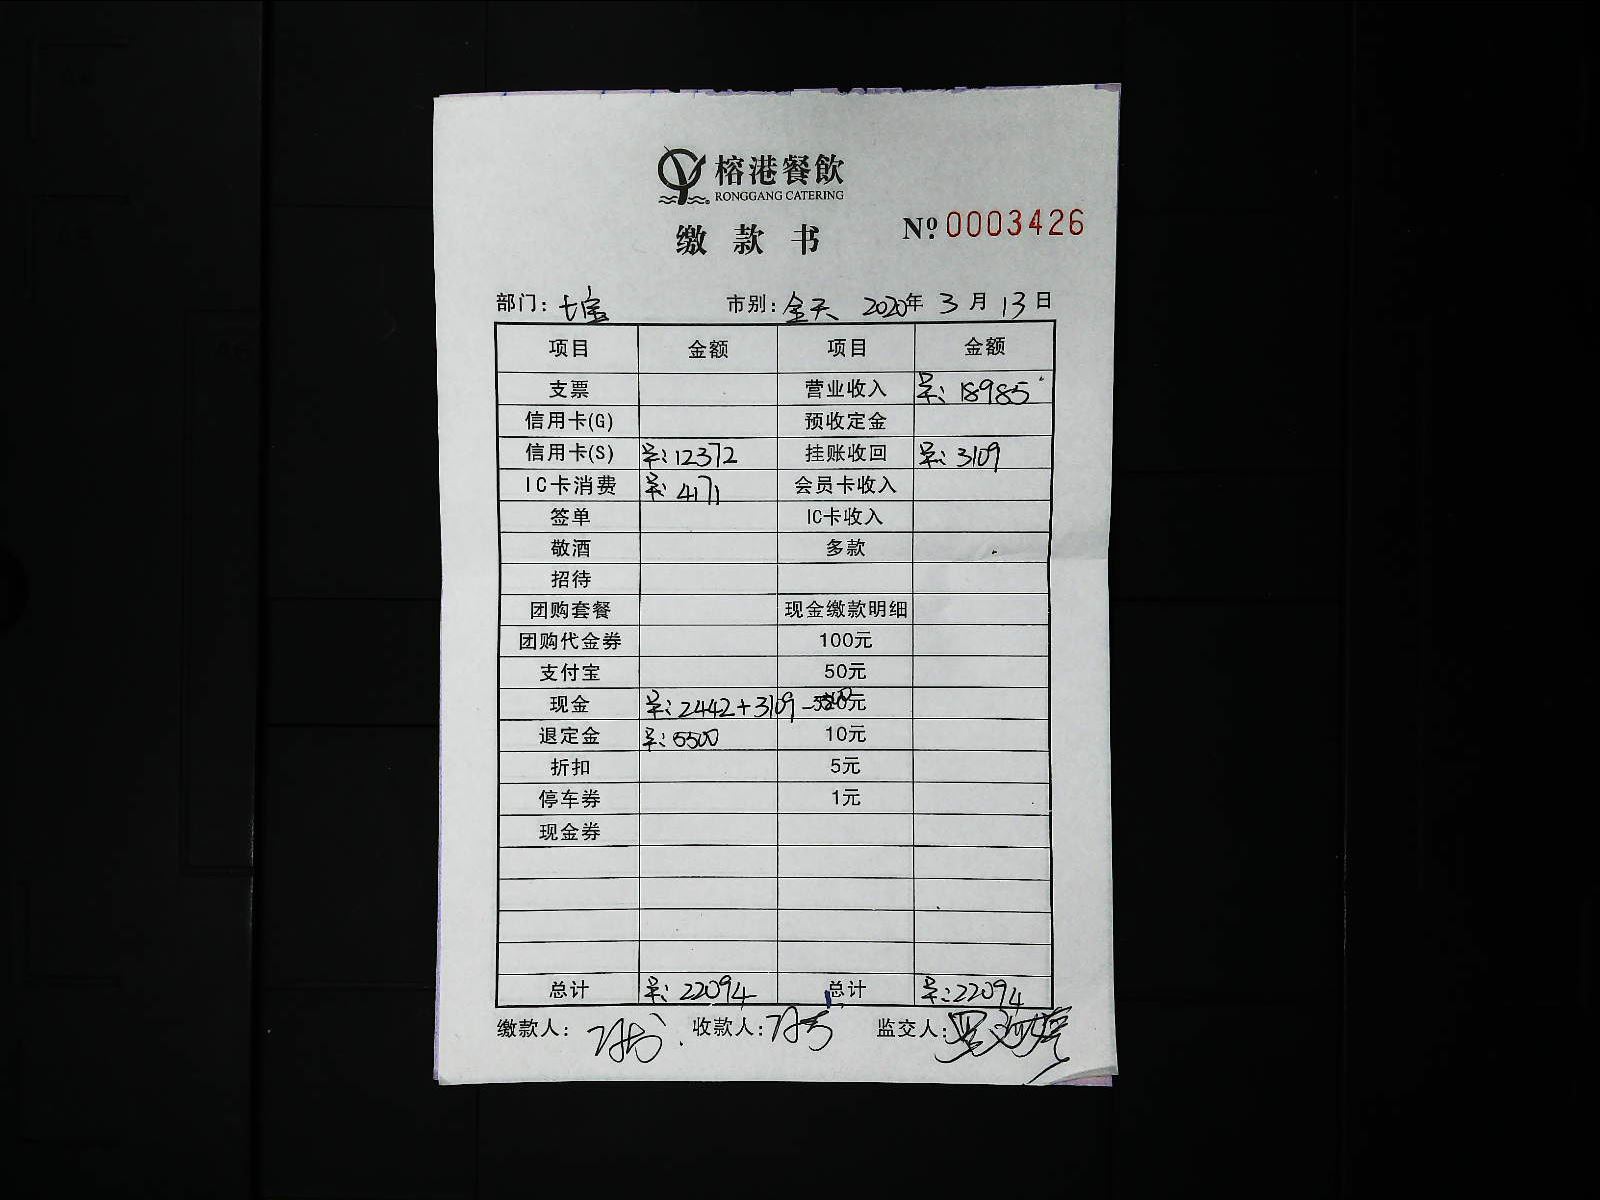 榕港餐飲
RONGGANG CATERING
缴款书
Nº 0003426
部门: 七宝 市别: 全天 2020年 3月 13日
项目 金额 项目 金额
支票 营业收入 单: 18985
信用卡(G) 预收定金
信用卡(S) 单: 12372 挂账收回 单: 3109
IC卡消费 单: 4171 会员卡收入
签单 IC卡收入
敬酒 多款
招待
团购套餐 现金缴款明细
团购代金券 100元
支付宝 50元
现金 单: 2442+3109- 元
退定金 单: 5500 10元
折扣 5元
停车券 1元
现金券
总计 单: 22094 总计 单: 22094
缴款人: 收款人: 监交人: